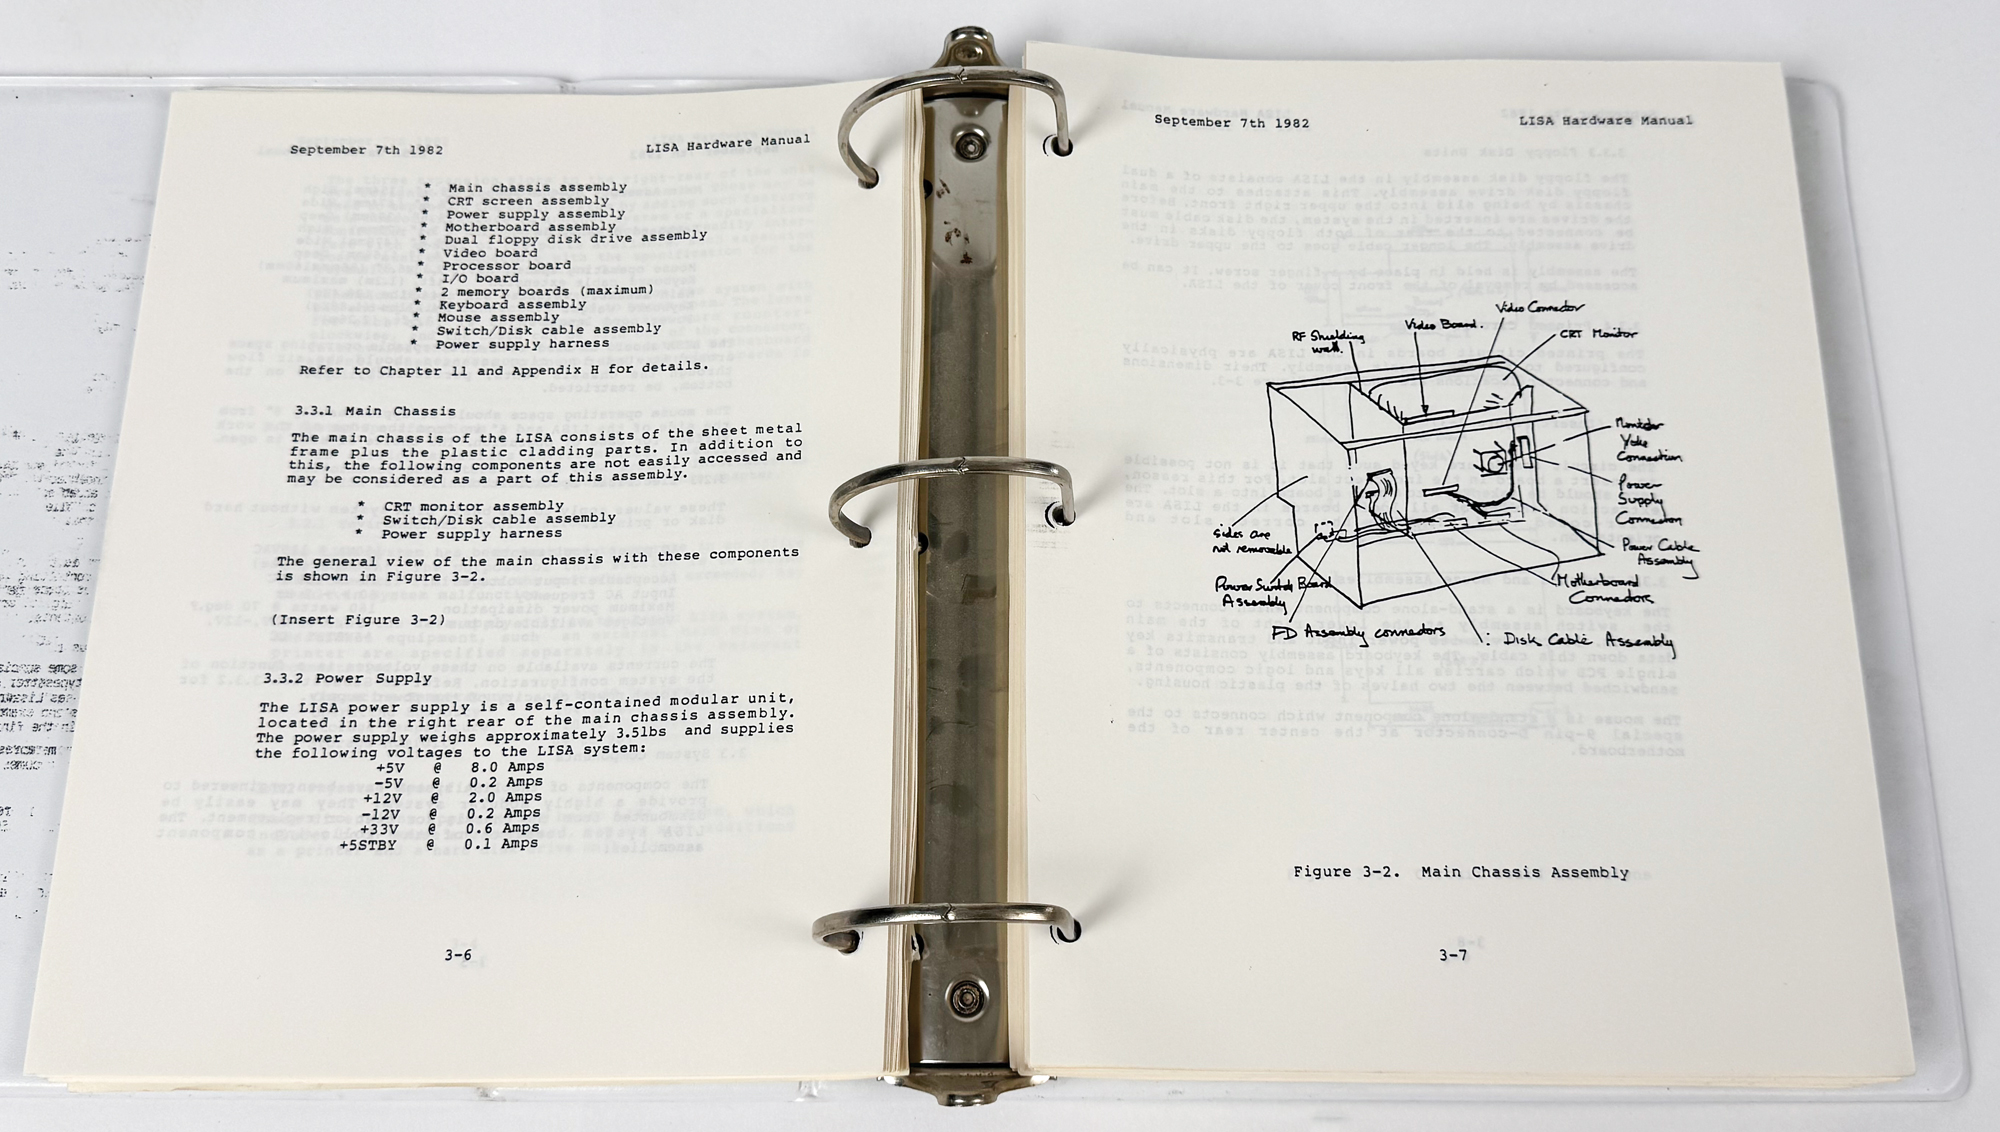 September 7th 1982 LISA Hardware Manual
* Main chassis assembly
* CRT screen assembly
* Power supply assembly
* Motherboard assembly
* Dual floppy disk drive assembly
* Video board
* Processor board
* I/O board
* 2 memory boards (maximum)
* Keyboard assembly
* Mouse assembly
* Switch/Disk cable assembly
* Power supply harness
Refer to Chapter 11 and Appendix H for details.
3.3.1 Main Chassis
The main chassis of the LISA consists of the sheet metal
frame plus the plastic cladding parts. In addition to
this, the following components are not easily accessed and
may be considered as a part of this assembly.
* CRT monitor assembly
* Switch/Disk cable assembly
* Power supply harness
The general view of the main chassis with these components
is shown in Figure 3-2.
(Insert Figure 3-2)
3.3.2 Power Supply
The LISA power supply is a self-contained modular unit,
located in the right rear of the main chassis assembly.
The power supply weighs approximately 3.5lbs and supplies
the following voltages to the LISA system:
+5V @ 8.0 Amps
-5V @ 0.2 Amps
+12V @ 2.0 Amps
-12V @ 0.2 Amps
+33V @ 0.6 Amps
+5STBY @ 0.1 Amps
3-6
September 7th 1982 LISA Hardware Manual
Video Connector
Video Board.
RF Shielding
wall.
CRT Monitor
Monitor
Yoke
Connection
Power
Supply
Connection
Sides are
not removable
Power Cable
Assembly
Power Switch Board
Assembly
Motherboard
Connectors
FD Assembly connectors
: Disk Cable Assembly
Figure 3-2. Main Chassis Assembly
3-7